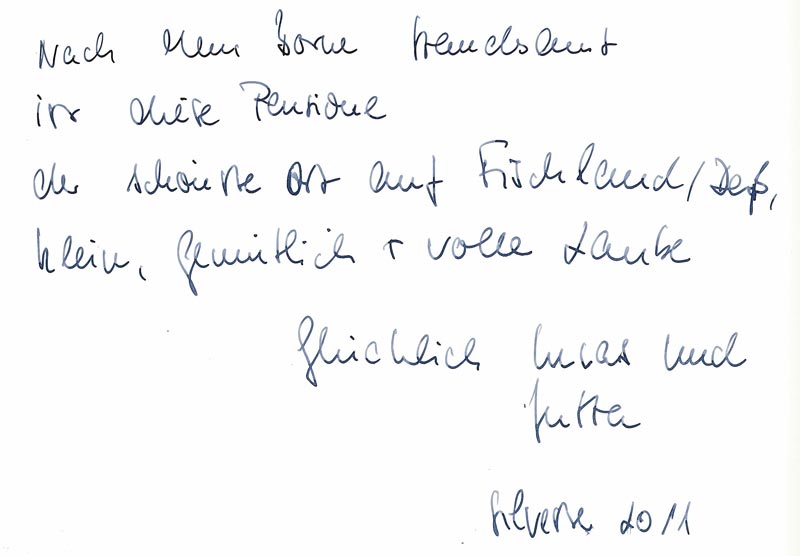 Nach dem Borner
ist diese Pensione
der schönste Ort auf Fischland/Darß,
klein, gemütlich + voller Laube
Glücklich Lucas und
Jutta
Silvester 2011